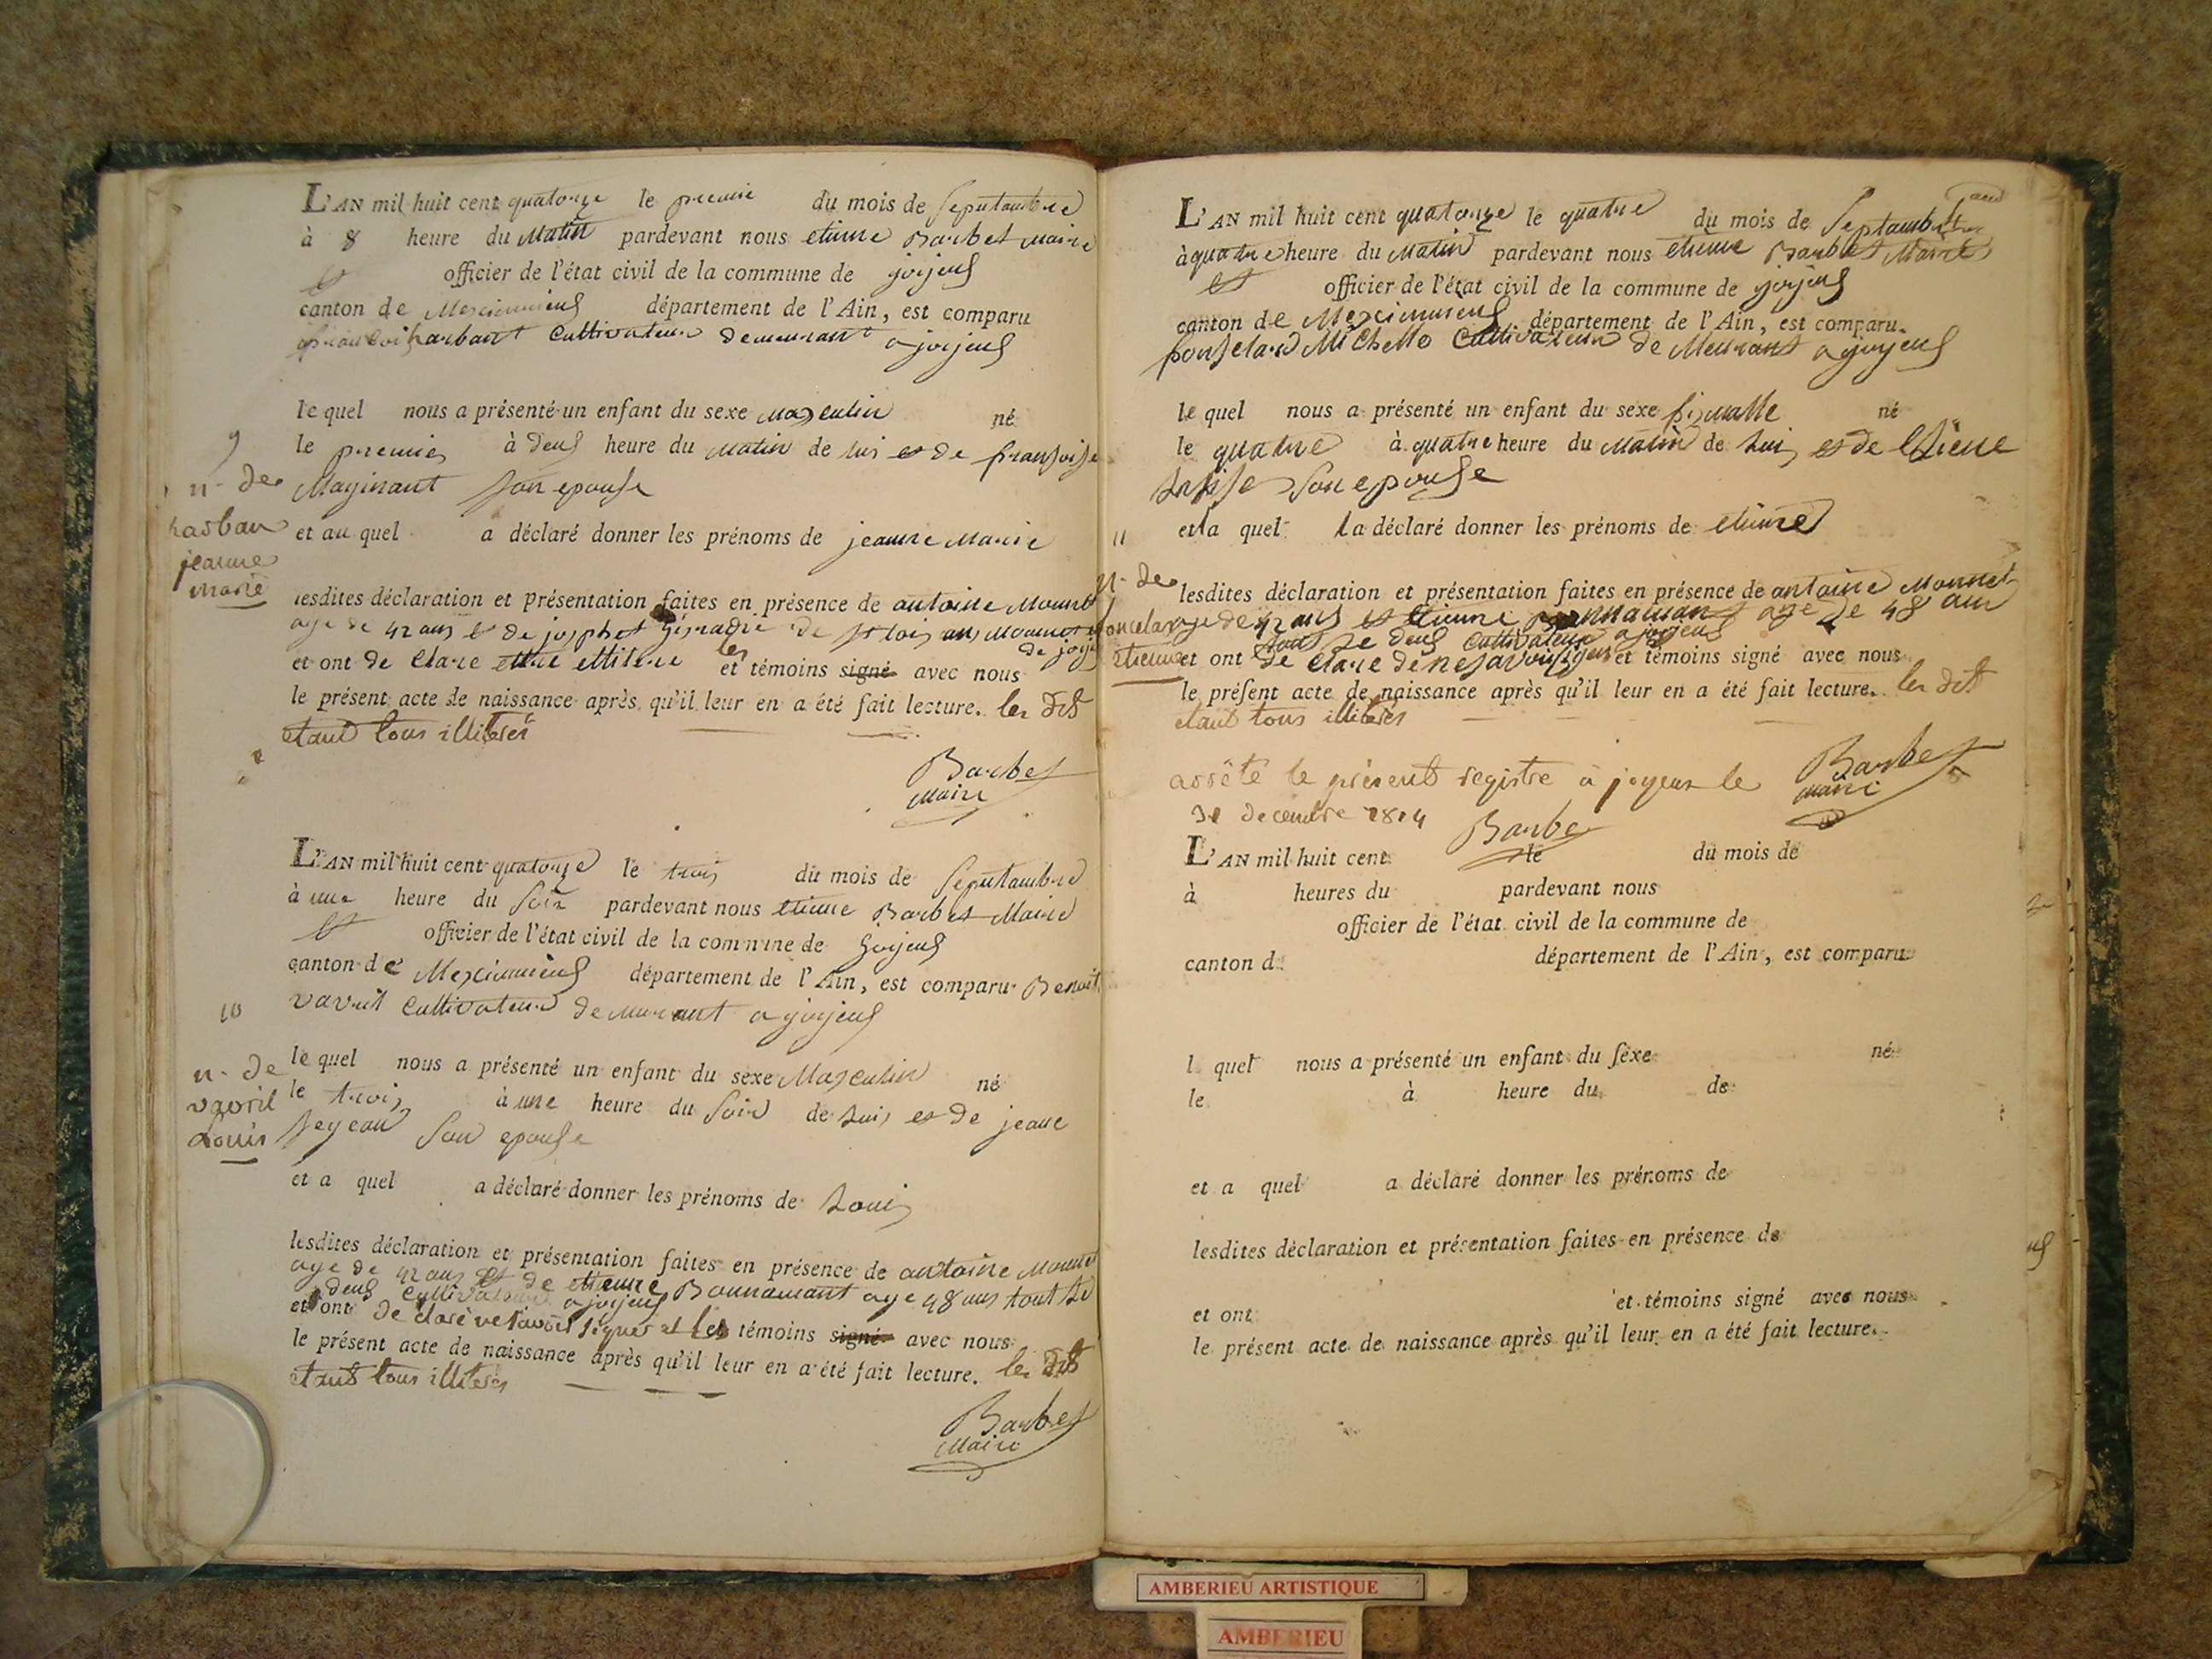 L'AN mil huit cent quatorze le premie du mois de Septambre
à 8 heure du Matin pardevant nous etiene Barbet Maire
et officier de l'état civil de la commune de joijeus
canton de Meximieus département de l'Ain, est comparu
harbant Cultivateur demeurant a joijeus
le quel nous a présenté un enfant du sexe masculin né
le premier à deus heure du matin de lui et de fransoise
Maginant son epouse
et au quel a déclaré donner les prénoms de jeanne Marie
lesdites déclaration et présentation faites en présence de antoine Monnet
age de 42 ans et de de
et ont de Clare les et témoins signé avec nous
le présent acte de naissance après qu'il leur en a été fait lecture. les dits
etant tous illiterés
Barbet
Maire
9
n. de
harban
jeanne
marie
L'AN mil huit cent quatorze le trois du mois de Septambre
à une heure du soir pardevant nous etiene Barbet Maire
et officier de l'état civil de la commune de joijeus
canton de Meximieus département de l'Ain, est comparu Benoit
vavril Cultivateur demeurant a joijeus
le quel nous a présenté un enfant du sexe Masculin né
le trois à une heure du soir de lui et de jeane
son epouse
et a quel a déclaré donner les prénoms de Loui
lesdites déclaration et présentation faites en présence de antoine Monnet
age de 42 ans et de etienne Bonnamant age 48 ans tout le
deus Cultivateur a joijeus
et ont de claré ne savoir signer et les témoins signé avec nous
le présent acte de naissance après qu'il leur en a été fait lecture. les dits
etant tous illiterés
Barbet
Maire
10
n. de
vavril
Louis
L'AN mil huit cent quatorze le quatre du mois de Septambre
à quatre heure du Matin pardevant nous etiene Barbet Maire
et officier de l'état civil de la commune de joijeus
canton de Meximieus département de l'Ain, est comparu
ponselard Michelle Cultivateur de Meurant a joyeus
le quel nous a présenté un enfant du sexe fimalle né
le quatre à quatre heure du matin de lui et de
son epouse
et la quel la déclaré donner les prénoms de etiene
11
n. de
poncelar
etienne
lesdites déclaration et présentation faites en présence de antoine Monnet
age de 42 ans et etienne Bonnamant age de 48 ans
tous le deus Cultivateur a joyeus
et ont de clare de ne savoir signer et témoins signé avec nous
le présent acte de naissance après qu'il leur en a été fait lecture. les dits
etant tous illiterés
Barbet
maire
arrêté le présent registre à joyeux le
31 decembre 1814
Barbet
L'AN mil huit cent le du mois de
à heures du pardevant nous
officier de l'état civil de la commune de
canton d département de l'Ain, est comparu
l quel nous a présenté un enfant du sexe né
le à heure du de
et a quel a déclaré donner les prénoms de
lesdites déclaration et présentation faites en présence de
et ont et témoins signé avec nous
le présent acte de naissance après qu'il leur en a été fait lecture.
AMBERIEU ARTISTIQUE
AMBERIEU